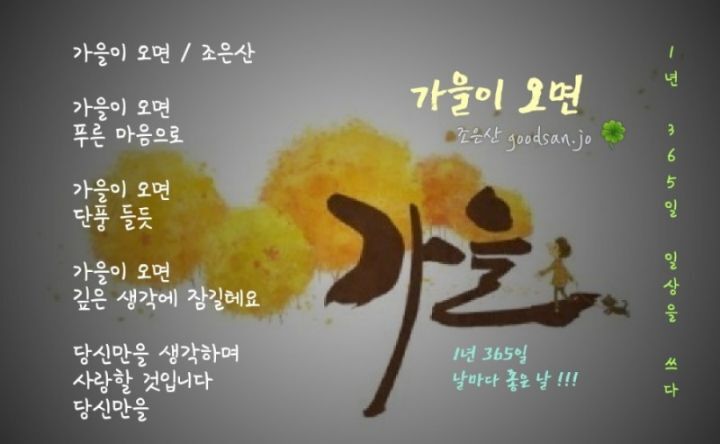 가을이 오면 / 조은산
가을이 오면
푸른 마음으로
가을이 오면
단풍 들듯
가을이 오면
깊은 생각에 잠길테요
당신만을 생각하며
사랑할 것입니다
당신만을
가을이 오면
조은산 goodsan.jo
가을
1년 365일
날마다 좋은 날 !!!
1년 365일 일상을 쓰다